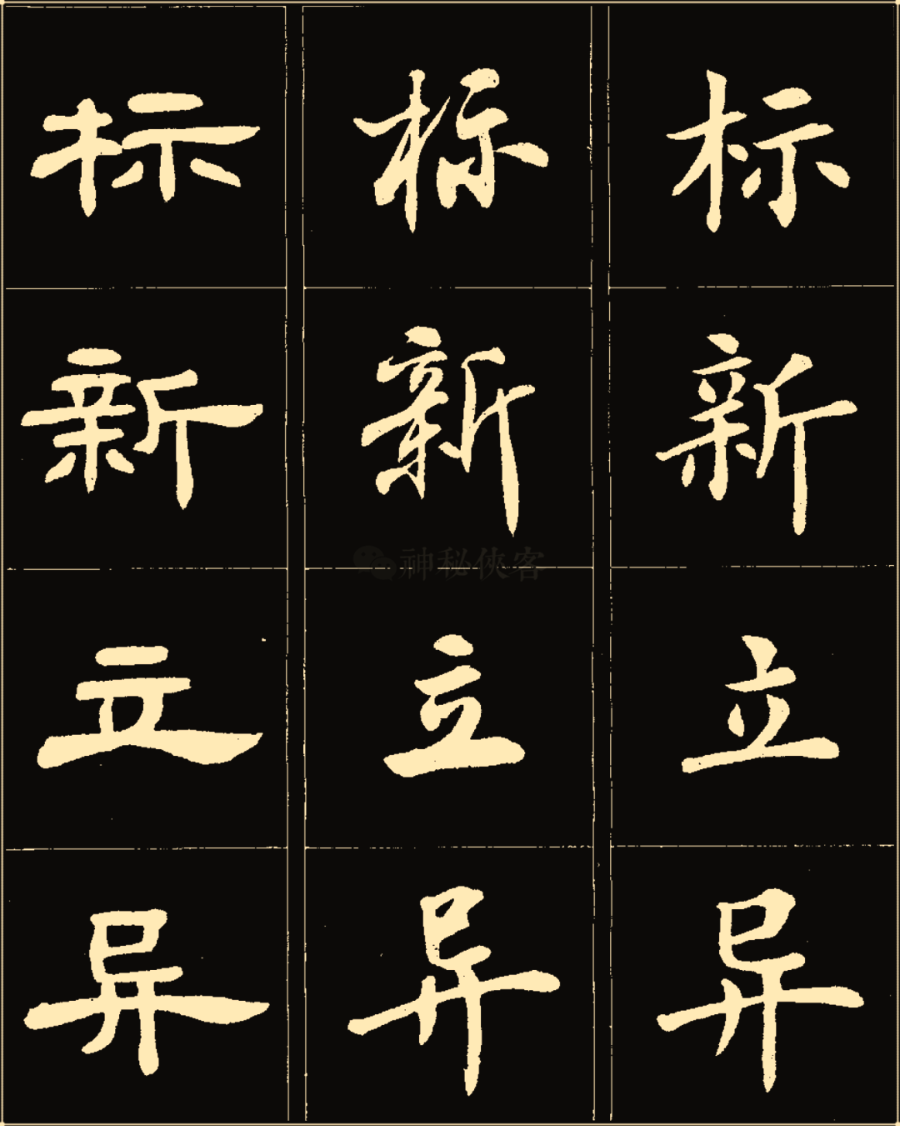 标 标 标
新 新 新
神秘侠客
立 立 立
异 异 异